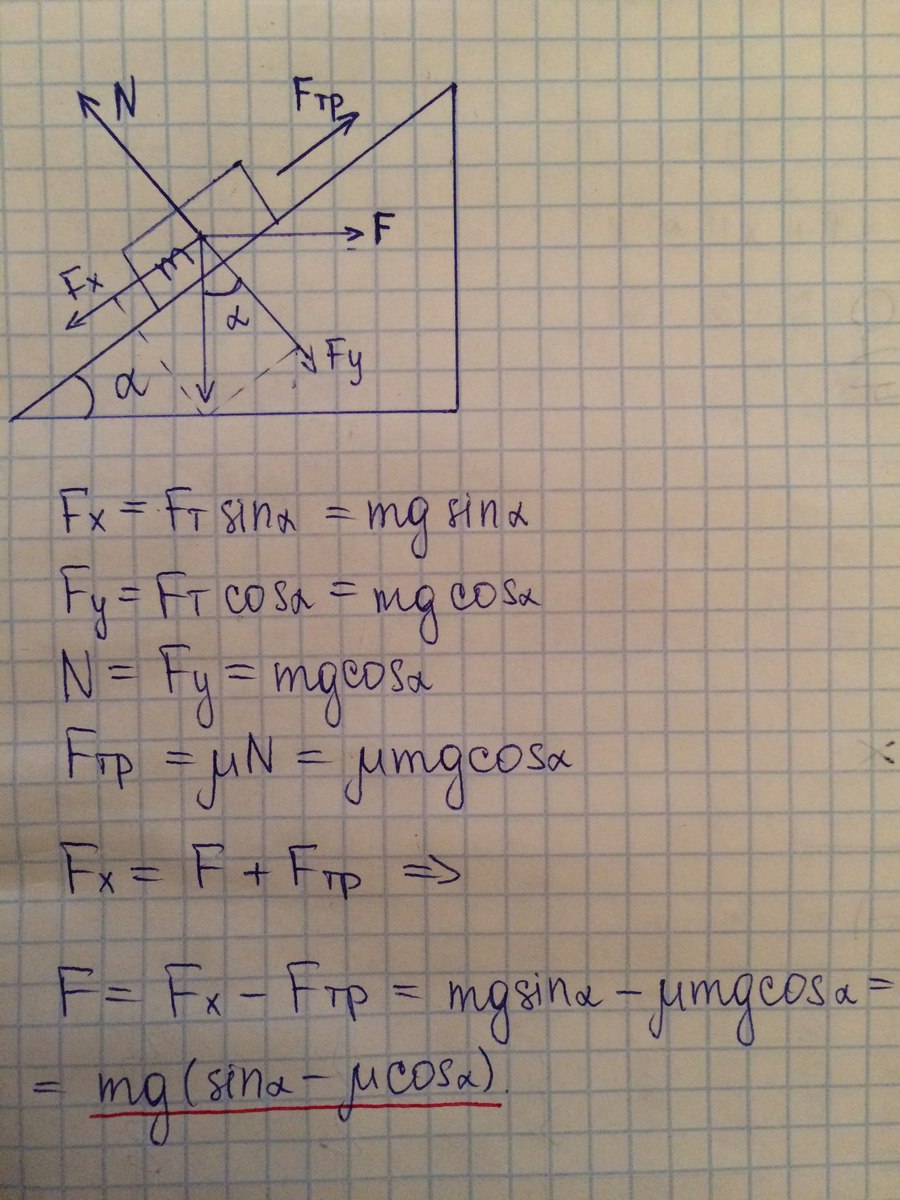 N
Fтр
F
m
Fx
α
Fy
α
Fx = Fт sinα = mg sinα
Fy = Fт cosα = mg cosα
N = Fy = mgcosα
Fтр = μN = μmgcosα
Fx = F + Fтр ⇒
F = Fx − Fтр = mgsinα − μmgcosα =
= mg(sinα − μcosα).